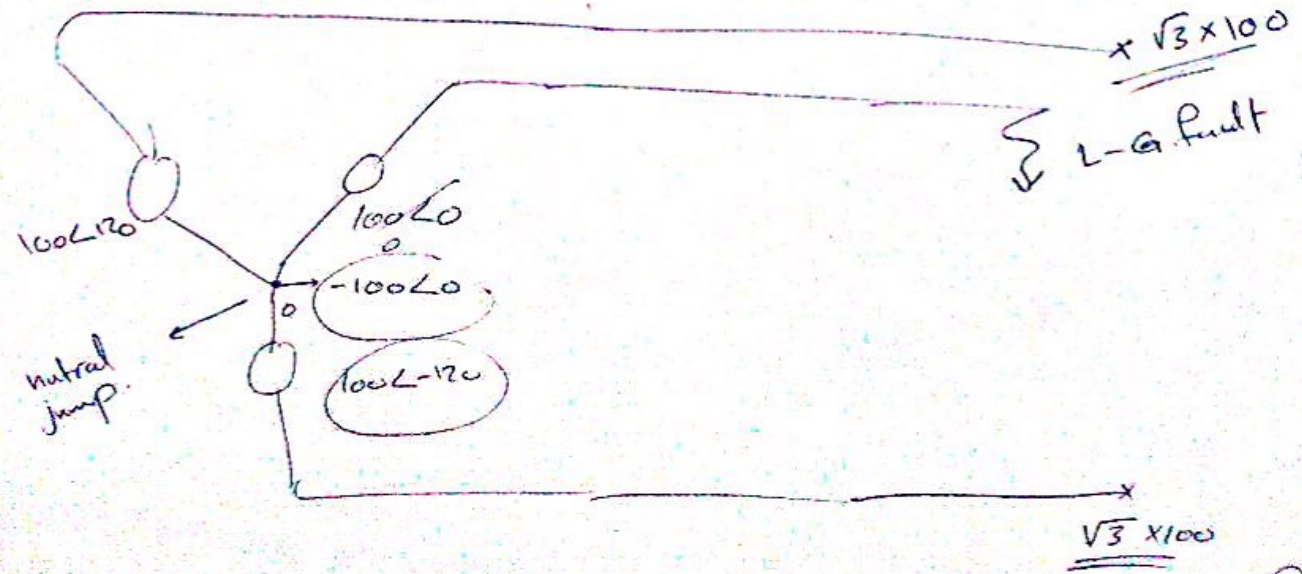 × √3 × 100
L-G. fault
100∠120
100∠0
0
-100∠0
0
nutral
jump.
100∠-120
×
√3 ×100